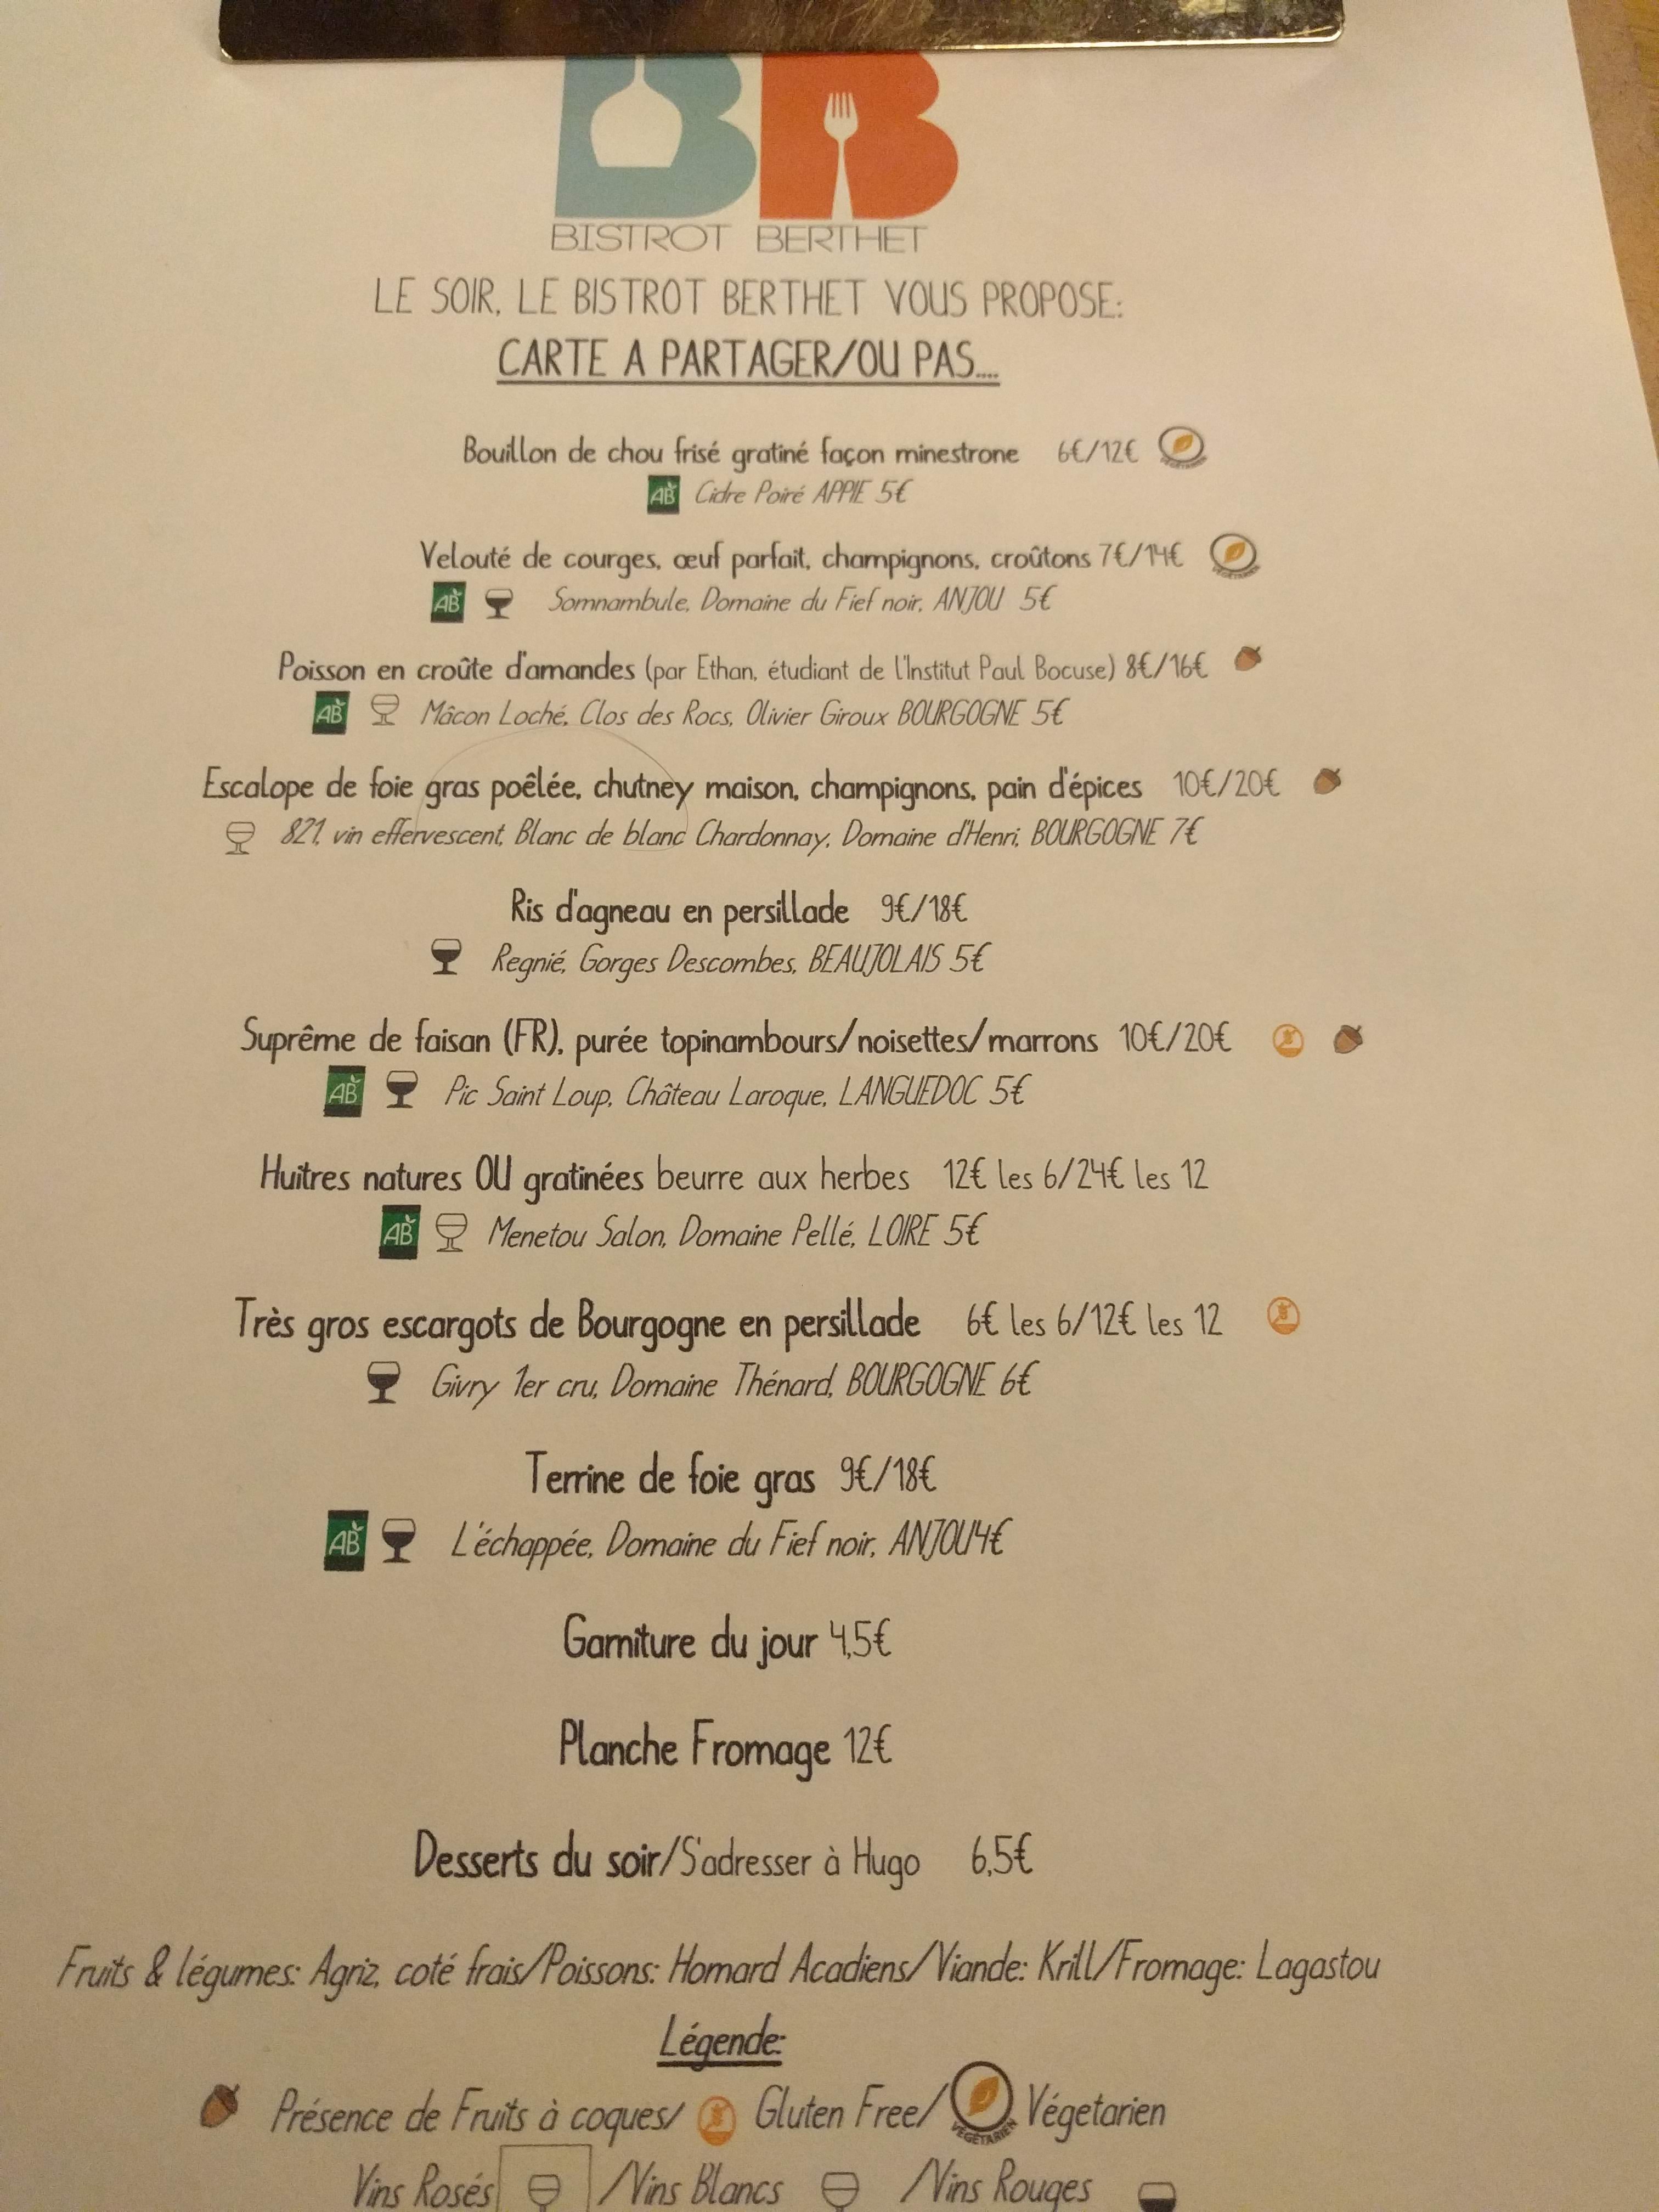 BISTROT BERTHET
LE SOIR, LE BISTROT BERTHET VOUS PROPOSE:
CARTE A PARTAGER/OU PAS....
Bouillon de chou frisé gratiné façon minestrone 6€/12€
VÉGÉTARIEN
AB Cidre Poiré APPIE 5€
Velouté de courges, œuf parfait, champignons, croûtons 7€/14€
VÉGÉTARIEN
AB Somnambule, Domaine du Fief noir, ANJOU 5€
Poisson en croûte d'amandes (par Ethan, étudiant de l'Institut Paul Bocuse) 8€/16€
AB Mâcon Loché, Clos des Rocs, Olivier Giroux BOURGOGNE 5€
Escalope de foie gras poêlée, chutney maison, champignons, pain d'épices 10€/20€
821, vin effervescent, Blanc de blanc Chardonnay, Domaine d'Henri, BOURGOGNE 7€
Ris d'agneau en persillade 9€/18€
Regnié, Gorges Descombes, BEAUJOLAIS 5€
Suprême de faisan (FR), purée topinambours/noisettes/marrons 10€/20€
AB Pic Saint Loup, Château Laroque, LANGUEDOC 5€
Huîtres natures OU gratinées beurre aux herbes 12€ les 6/24€ les 12
AB Menetou Salon, Domaine Pellé, LOIRE 5€
Très gros escargots de Bourgogne en persillade 6€ les 6/12€ les 12
Givry 1er cru, Domaine Thénard, BOURGOGNE 6€
Terrine de foie gras 9€/18€
AB L'échappée, Domaine du Fief noir, ANJOU4€
Garniture du jour 4,5€
Planche Fromage 12€
Desserts du soir/S'adresser à Hugo 6,5€
Fruits & légumes: Agriz, coté frais/Poissons: Homard Acadiens/Viande: Krill/Fromage: Lagastou
Légende:
Présence de Fruits à coques/ Gluten Free/ VÉGÉTARIEN Végetarien
Vins Rosés /Vins Blancs /Vins Rouges